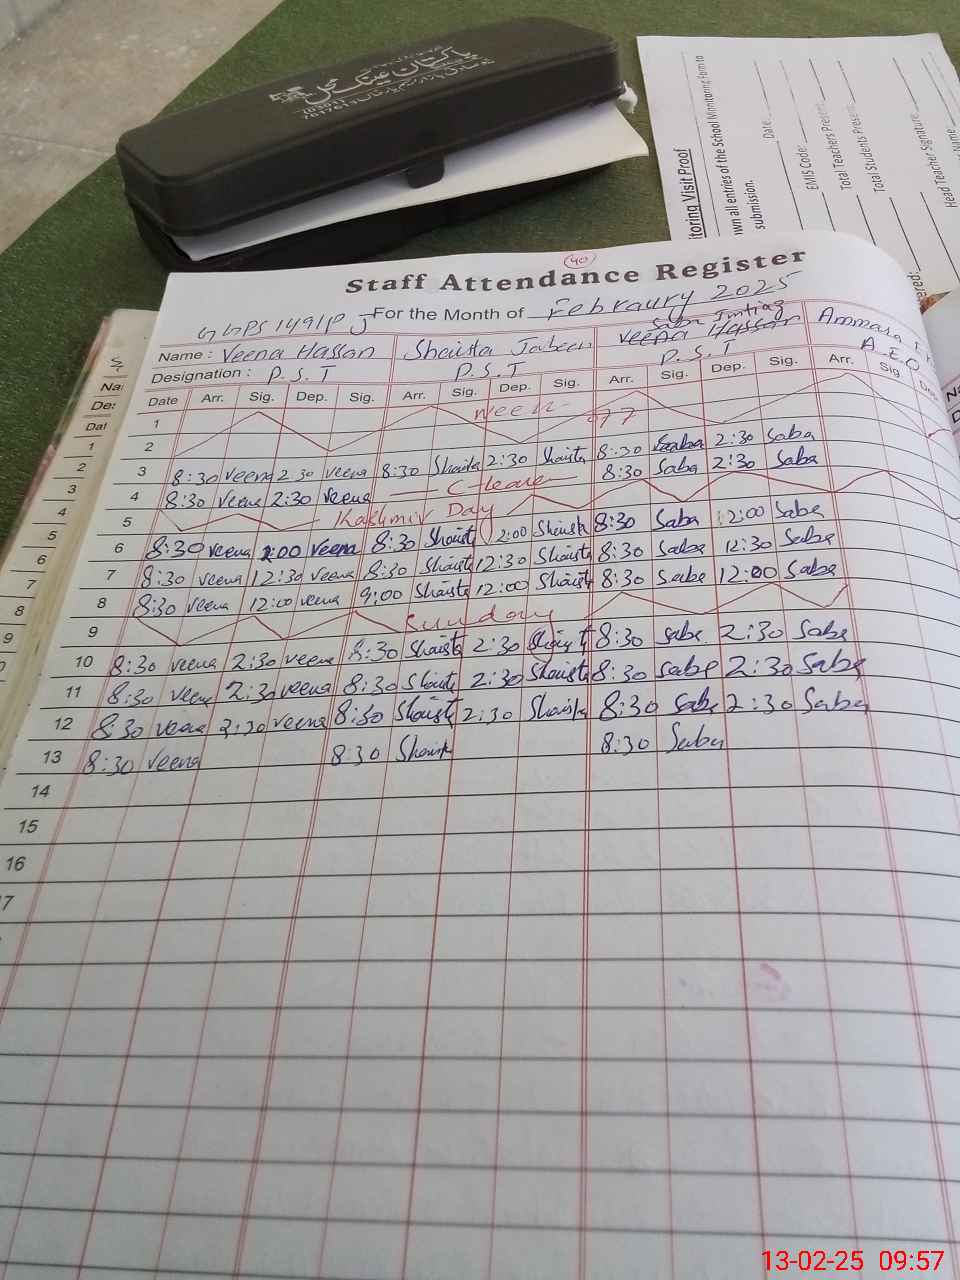 پاکستان عینک محل
itoring Visit Proof
own all entries of the School Monitoring Form to
submission.
Date:
EMIS Code:
Total Teachers Present:
Total Students Present:
Head Teacher Signature:
40
Staff Attendance Register
GGPS 149/P J For the Month of Febraury 2025
Saba Imtiaz
Name: Veena Hassan Shaista Jabeen Veena Hassan Ammara
Designation: P.S.T P.S.T P.S.T A.E.O
Date Arr. Sig. Dep. Sig. Arr. Sig. Dep. Sig. Arr. Sig. Dep. Sig. Arr. Sig.
1
2
3 8:30 veena 2:30 veena 8:30 Shaista 2:30 Shaista 8:30 Saba 2:30 Saba
4 8:30 veena 2:30 veena C-leave 8:30 Saba 2:30 Saba
5 Kashmir Day
6 8:30 veena 2:00 veena 8:30 Shaista 2:00 Shaista 8:30 Saba 2:00 Saba
7 8:30 veena 12:30 veena 8:30 Shaista 12:30 Shaista 8:30 Saba 12:30 Saba
8 8:30 veena 12:00 veena 9:00 Shaista 12:00 Shaista 8:30 Saba 12:00 Saba
9 Sunday
10 8:30 veena 2:30 veena 8:30 Shaista 2:30 Shaista 8:30 Saba 2:30 Saba
11 8:30 veena 2:30 veena 8:30 Shaista 2:30 Shaista 8:30 Saba 2:30 Saba
12 8:30 veena 2:30 veena 8:30 Shaista 2:30 Shaista 8:30 Saba 2:30 Saba
13 8:30 veena 8:30 Shaista 8:30 Saba
14
15
16
13-02-25 09:57